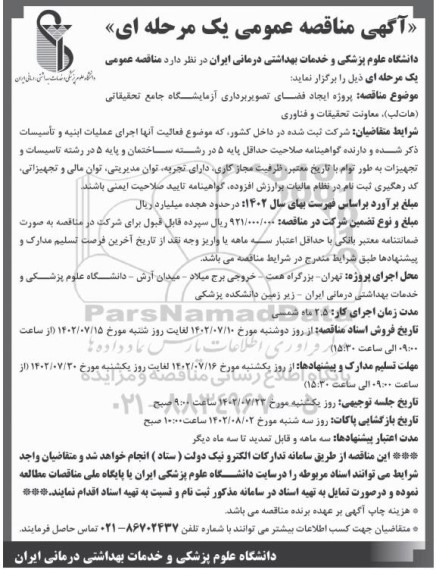 «آگهی مناقصه عمومی یک مرحله ای»
دانشگاه علوم پزشکی و خدمات بهداشتی درمانی ایران
دانشگاه علوم پزشکی و خدمات بهداشتی درمانی ایران در نظر دارد مناقصه عمومی
یک مرحله ای ذیل را برگزار نماید:
موضوع مناقصه: پروژه ایجاد فضای تصویربرداری آزمایشگاه جامع تحقیقاتی
(هات‌لب)، معاونت تحقیقات و فناوری
شرایط متقاضیان: شرکت ثبت شده در داخل کشور، که موضوع فعالیت آنها اجرای عملیات ابنیه و تأسیسات
ذکر شده و دارنده گواهینامه صلاحیت حداقل پایه ۵ در رشته ساختمان و پایه ۵ در رشته تاسیسات و
تجهیزات به طور توام با تاریخ معتبر، ظرفیت مجاز کاری، دارای تجربه، توان مدیریتی، توان مالی و تجهیزاتی،
کد رهگیری ثبت نام در نظام مالیات برارزش افزوده، گواهینامه تایید صلاحیت ایمنی باشند.
مبلغ برآورد براساس فهرست بهای سال ۱۴۰۲: در حدود هجده میلیارد ریال
مبلغ و نوع تضمین شرکت در مناقصه: ۹۲۱/۰۰۰/۰۰۰ ریال سپرده قابل قبول برای شرکت در مناقصه به صورت
ضمانتنامه معتبر بانکی با حداقل اعتبار سه ماهه یا واریز وجه نقد از تاریخ آخرین فرصت تسلیم مدارک و
پیشنهادها طبق شرایط مندرج در شرایط مناقصه می باشد.
محل اجرای پروژه: تهران- بزرگراه همت - خروجی برج میلاد - میدان آرش - دانشگاه علوم پزشکی و
خدمات بهداشتی درمانی ایران - زیر زمین دانشکده پزشکی
مدت زمان اجرای کار: ۲.۵ ماه شمسی
تاریخ فروش اسناد مناقصه: از روز دوشنبه مورخ ۱۴۰۲/۰۷/۱۰ لغایت روز شنبه مورخ ۱۴۰۲/۰۷/۱۵ (از ساعت
۰۹:۰۰ الی ساعت ۱۵:۳۰)
مهلت تسلیم مدارک و پیشنهادها: از روز یکشنبه مورخ ۱۴۰۲/۰۷/۱۶ لغایت روز یکشنبه مورخ ۱۴۰۲/۰۷/۳۰ (از
ساعت ۰۹:۰۰ الی ساعت ۱۵:۳۰)
تاریخ جلسه توجیهی: روز یکشنبه مورخ ۱۴۰۲/۰۷/۲۳ ساعت ۹:۰۰ صبح
تاریخ بازگشایی پاکات: روز سه شنبه مورخ ۱۴۰۲/۰۸/۰۲ ساعت ۱۰:۰۰ صبح
مدت اعتبار پیشنهادها: سه ماهه و قابل تمدید تا سه ماه دیگر
*** این مناقصه از طریق سامانه تدارکات الکترونیک دولت ( ستاد ) انجام خواهد شد و متقاضیان واجد
شرایط می توانند اسناد مربوطه را درسایت دانشگاه علوم پزشکی ایران یا پایگاه ملی مناقصات مطالعه
نموده و درصورت تمایل به تهیه اسناد در سامانه مذکور ثبت نام و نسبت به تهیه اسناد اقدام نمایند.***
* هزینه چاپ آگهی بر عهده برنده مناقصه می باشد.
* متقاضیان جهت کسب اطلاعات بیشتر می توانند با شماره تلفن ۸۶۷۰۲۴۳۷-۰۲۱ تماس حاصل فرمایند.
دانشگاه علوم پزشکی و خدمات بهداشتی درمانی ایران